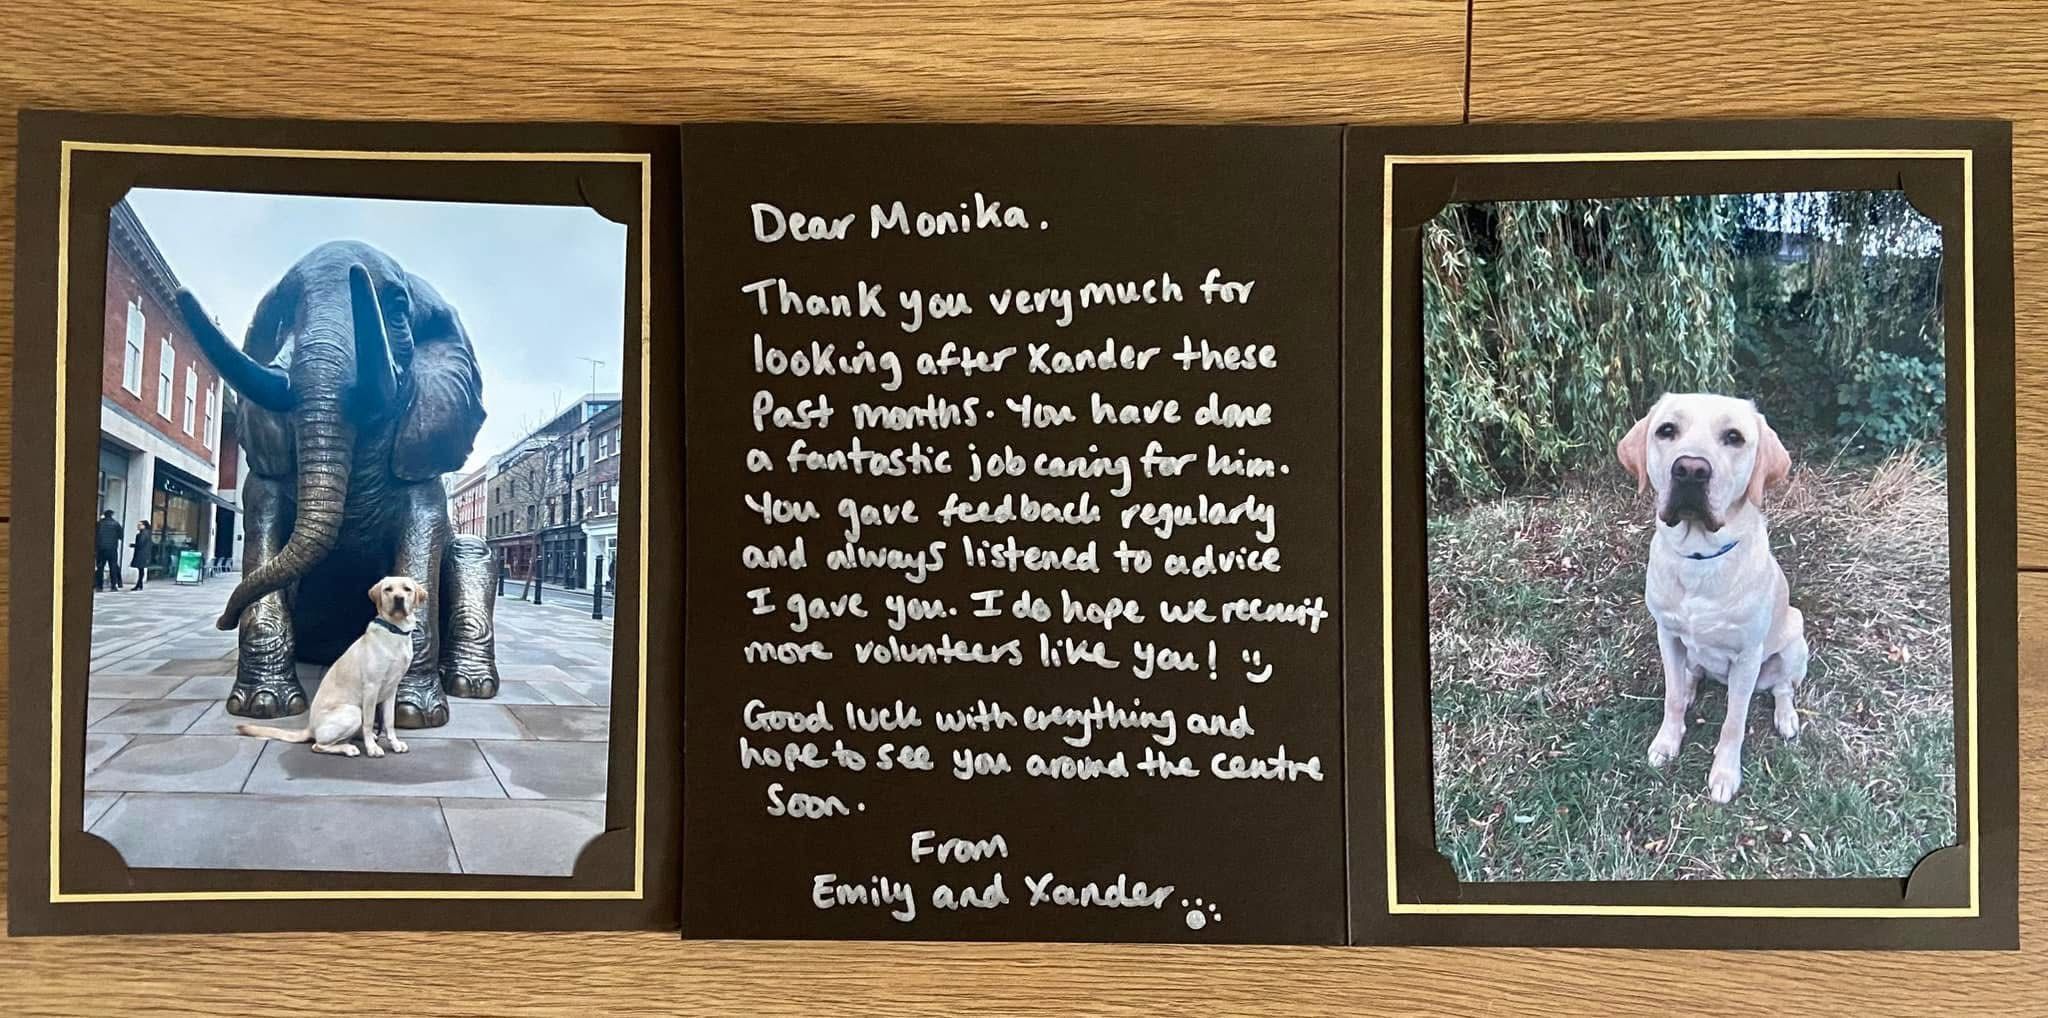 Dear Monika.
Thank you very much for
looking after Xander these
Past months. You have done
a fantastic job caring for him.
You gave feedback regularly
and always listened to advice
I gave you. I do hope we recruit
more volunteers like you! :)
Good luck with everything and
hope to see you around the centre
soon.
From
Emily and Xander